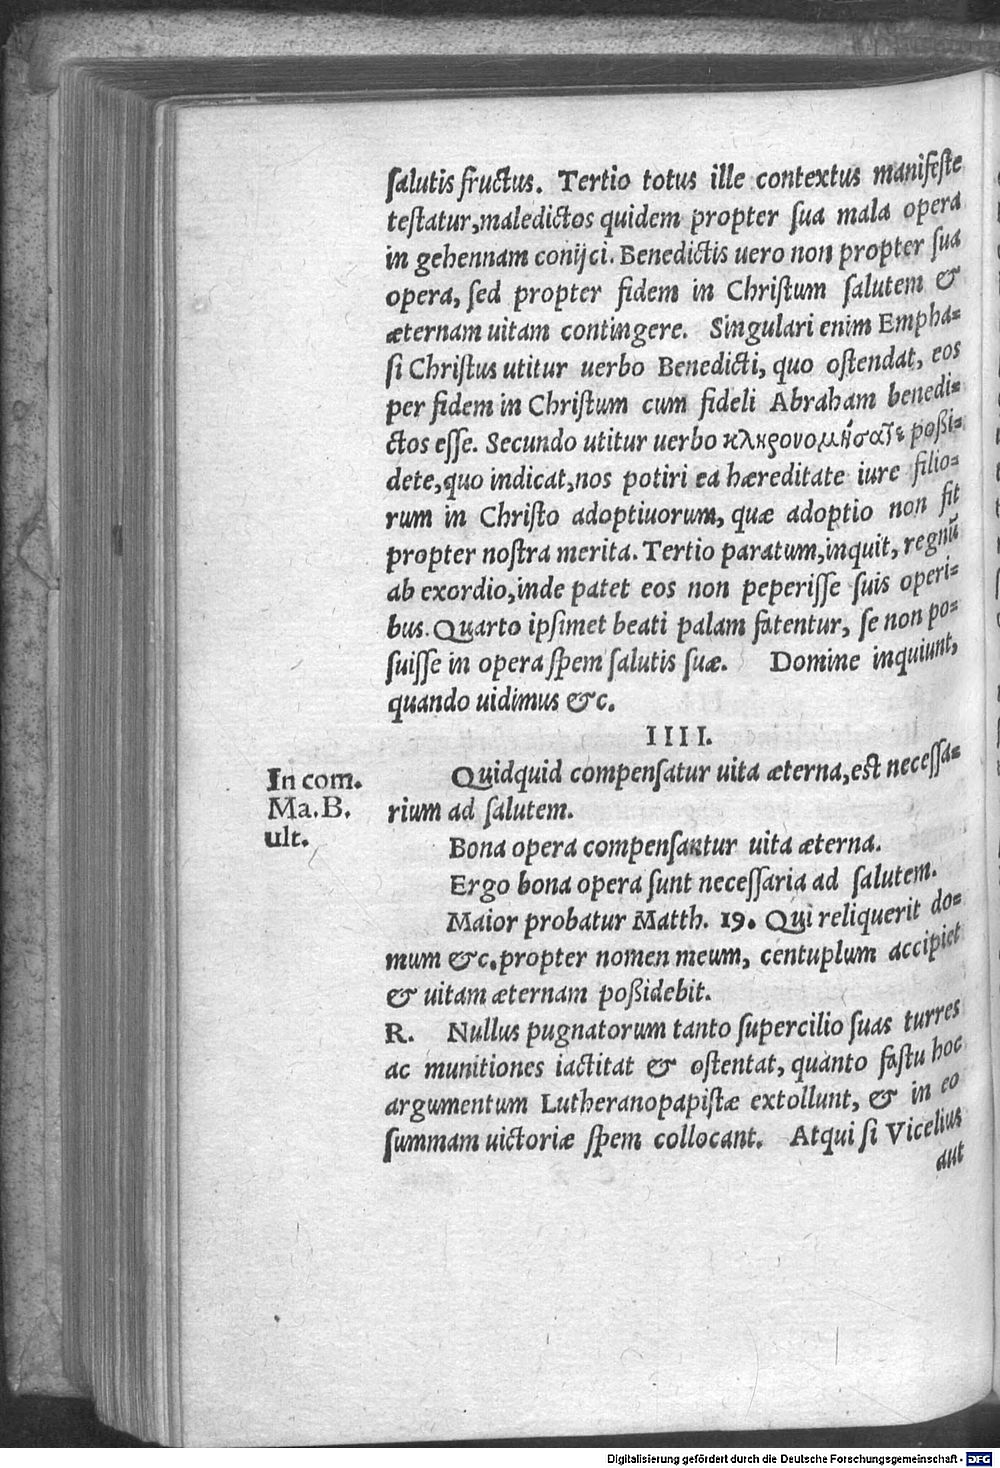 ſalutis fructus. Tertio totus ille contextus manifeſte
teſtatur, maledictos quidem propter ſua mala opera
in gehennam conijci. Benedictis uero non propter ſua
opera, ſed propter fidem in Chriſtum ſalutem &
æternam uitam contingere. Singulari enim Empha=
ſi Chriſtus utitur uerbo Benedicti, quo oſtendat, eos
per fidem in Chriſtum cum fideli Abraham benedi=
ctos eſſe. Secundo utitur uerbo κληρονομήσατε poßi=
dete, quo indicat, nos potiri ea hæreditate iure filio=
rum in Chriſto adoptiuorum, quæ adoptio non fit
propter noſtra merita. Tertio paratum, inquit, regnũ
ab exordio, inde patet eos non peperiſſe ſuis operi=
bus. Quarto ipſimet beati palam fatentur, ſe non po=
ſuiſſe in opera ſpem ſalutis ſuæ. Domine inquiunt,
quando uidimus &c.
IIII.
In com.
Ma. B.
ult.
Quidquid compenſatur uita æterna, est neceſſa=
rium ad ſalutem.
Bona opera compenſantur uita æterna.
Ergo bona opera ſunt neceſſaria ad ſalutem.
Maior probatur Matth. 19. Qui reliquerit do=
mum &c. propter nomen meum, centuplum accipiet
& uitam æternam poßidebit.
R. Nullus pugnatorum tanto ſupercilio ſuas turres
ac munitiones iactitat & oſtentat, quanto faſtu hoc
argumentum Lutheranopapiſtæ extollunt, & in eo
ſummam uictoriæ ſpem collocant. Atqui ſi Vicelius
aut
Digitalisierung gefördert durch die Deutsche Forschungsgemeinschaft - DFG